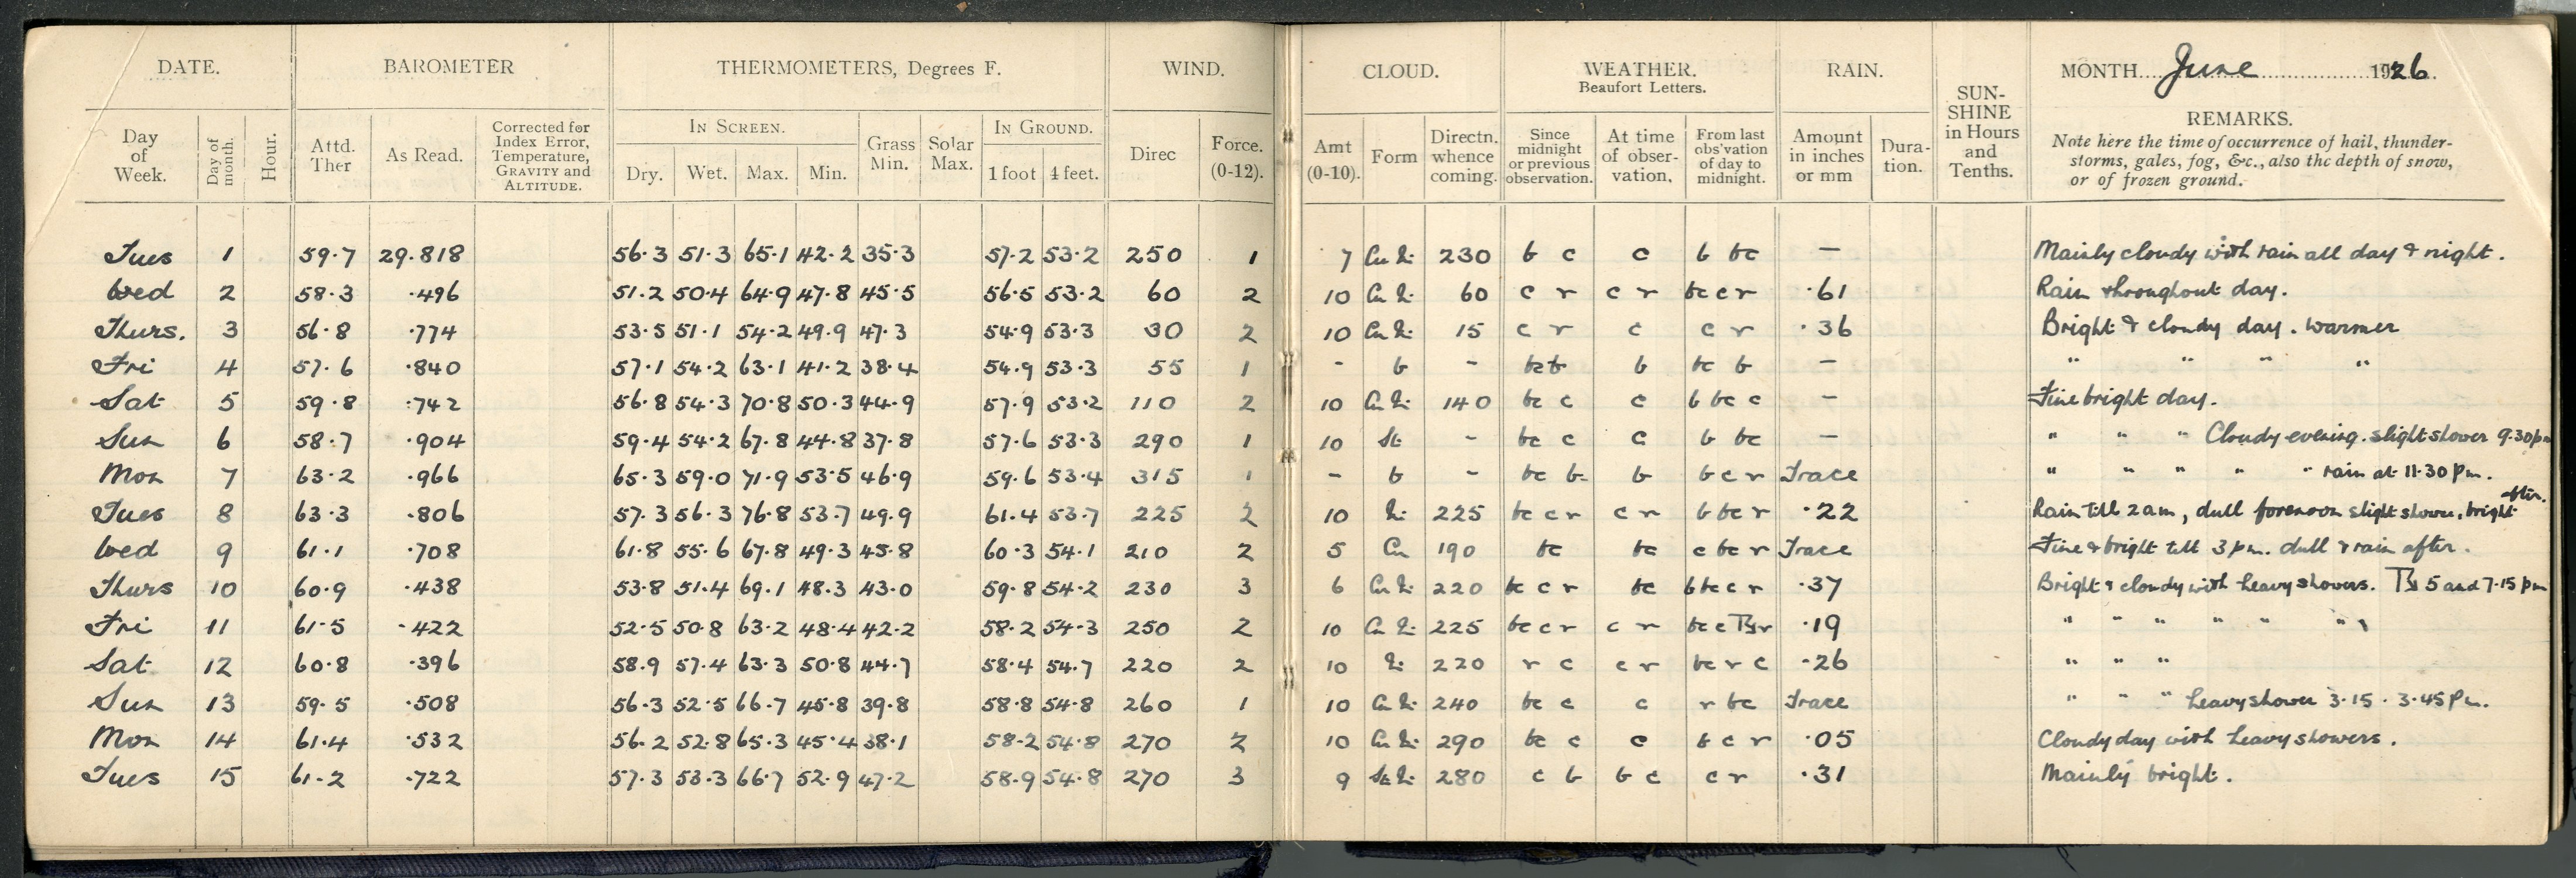 DATE. BAROMETER THERMOMETERS, Degrees F. WIND. CLOUD. WEATHER. Beaufort Letters. RAIN. SUN-SHINE in Hours and Tenths. MONTH June 1926
Day of Week. Day of month. Hour. Attd. Ther As Read. Corrected for Index Error, Temperature, GRAVITY and ALTITUDE. IN SCREEN. Dry. Wet. Max. Min. Grass Min. Solar Max. IN GROUND. 1 foot 4 feet. Direc Force. (0-12). Amt (0-10). Form Directn. whence coming. Since midnight or previous observation. At time of obser-vation. From last obs'vation of day to midnight. Amount in inches or mm Dura-tion. REMARKS.
Note here the time of occurrence of hail, thunder-
storms, gales, fog, &c., also the depth of snow,
or of frozen ground.
Tues 1 59.7 29.818 56.3 51.3 65.1 42.2 35.3 57.2 53.2 250 1 7 Cu Ni 230 b c c b bc — Mainly cloudy with rain all day & night.
Wed 2 58.3 .496 51.2 50.4 64.9 47.8 45.5 56.5 53.2 60 2 10 Cu Ni 60 c r c r bc c r .61 Rain throughout day.
Thurs. 3 56.8 .774 53.5 51.1 54.2 49.9 47.3 54.9 53.3 30 2 10 Cu Ni 15 c r c c r .36 Bright & cloudy day. Warmer
Fri 4 57.6 .840 57.1 54.2 63.1 41.2 38.4 54.9 53.3 55 1 - b - bc b b bc b — " " " "
Sat 5 59.8 .742 56.8 54.3 70.8 50.3 44.9 57.9 53.2 110 2 10 Cu Ni 140 bc c c b bc c — Fine bright day.
Sun 6 58.7 .904 59.4 54.2 67.8 44.8 37.8 57.6 53.3 290 1 10 St - bc c c b bc — " " " Cloudy evening. slight shower 9.30pm
Mon 7 63.2 .966 65.3 59.0 71.9 53.5 46.9 59.6 53.4 315 1 - b - bc b b b c r Trace " " " " " rain at 11.30 pm.
Tues 8 63.3 .806 57.3 56.3 76.8 53.7 49.9 61.4 53.7 225 2 10 Ni 225 bc c r c r b bc r .22 Rain till 2 am, dull forenoon slight shower, bright after.
Wed 9 61.1 .708 61.8 55.6 67.8 49.3 45.8 60.3 54.1 210 2 5 Cu 190 bc bc c bc r Trace Fine & bright till 3 pm. dull & rain after.
Thurs 10 60.9 .438 53.8 51.4 69.1 48.3 43.0 59.8 54.2 230 3 6 Cu Ni 220 bc c r bc b bc c r .37 Bright & cloudy with heavy showers. 5 and 7.15 pm
Fri 11 61.5 .422 52.5 50.8 63.2 48.4 42.2 58.2 54.3 250 2 10 Cu Ni 225 bc c r c r bc c r .19 " " " " " " "
Sat 12 60.8 .396 58.9 57.4 63.3 50.8 44.7 58.4 54.7 220 2 10 Ni 220 r c c r bc r c .26 " " "
Sun 13 59.5 .508 56.3 52.5 66.7 45.8 39.8 58.8 54.8 260 1 10 Cu Ni 240 bc c c r bc Trace " " " heavy shower 3.15 . 3.45 pm.
Mon 14 61.4 .532 56.2 52.8 65.3 45.4 38.1 58.2 54.8 270 2 10 Cu Ni 290 bc c c b c r .05 Cloudy day with heavy showers.
Tues 15 61.2 .722 57.3 53.3 66.7 52.9 47.2 58.9 54.8 270 3 9 St Ni 280 c b b c c r .31 Mainly bright.